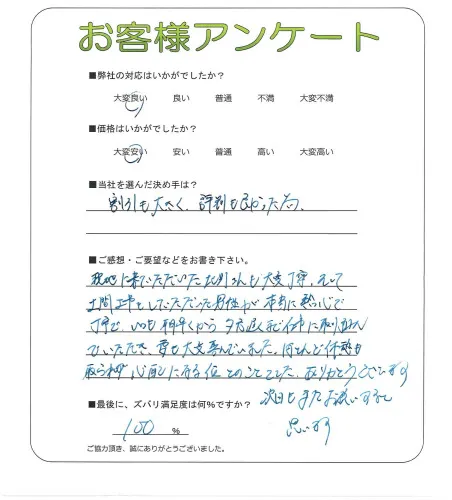 お客様アンケート
■弊社の対応はいかがでしたか？
大変良い 良い 普通 不満 大変不満
■価格はいかがでしたか？
大変安い 安い 普通 高い 大変高い
■当社を選んだ決め手は？
割引も大きく、評判も良かった為、
■ご感想・ご要望などをお書き下さい。
現地に来ていただいた さんも大変丁寧、そして
土間工事をしていただいた男性が本当に熱心で
丁寧で、いつも朝早くから夕方遅くまで仕事に取り組んで
いただいて、妻も大変喜んでいました。ほとんど休憩も
取られず心配になる位とのことでした。ありがとうございます
次回もまたお願いすると
思います
■最後に、ズバリ満足度は何％ですか？
100 ％
ご協力頂き、誠にありがとうございました。